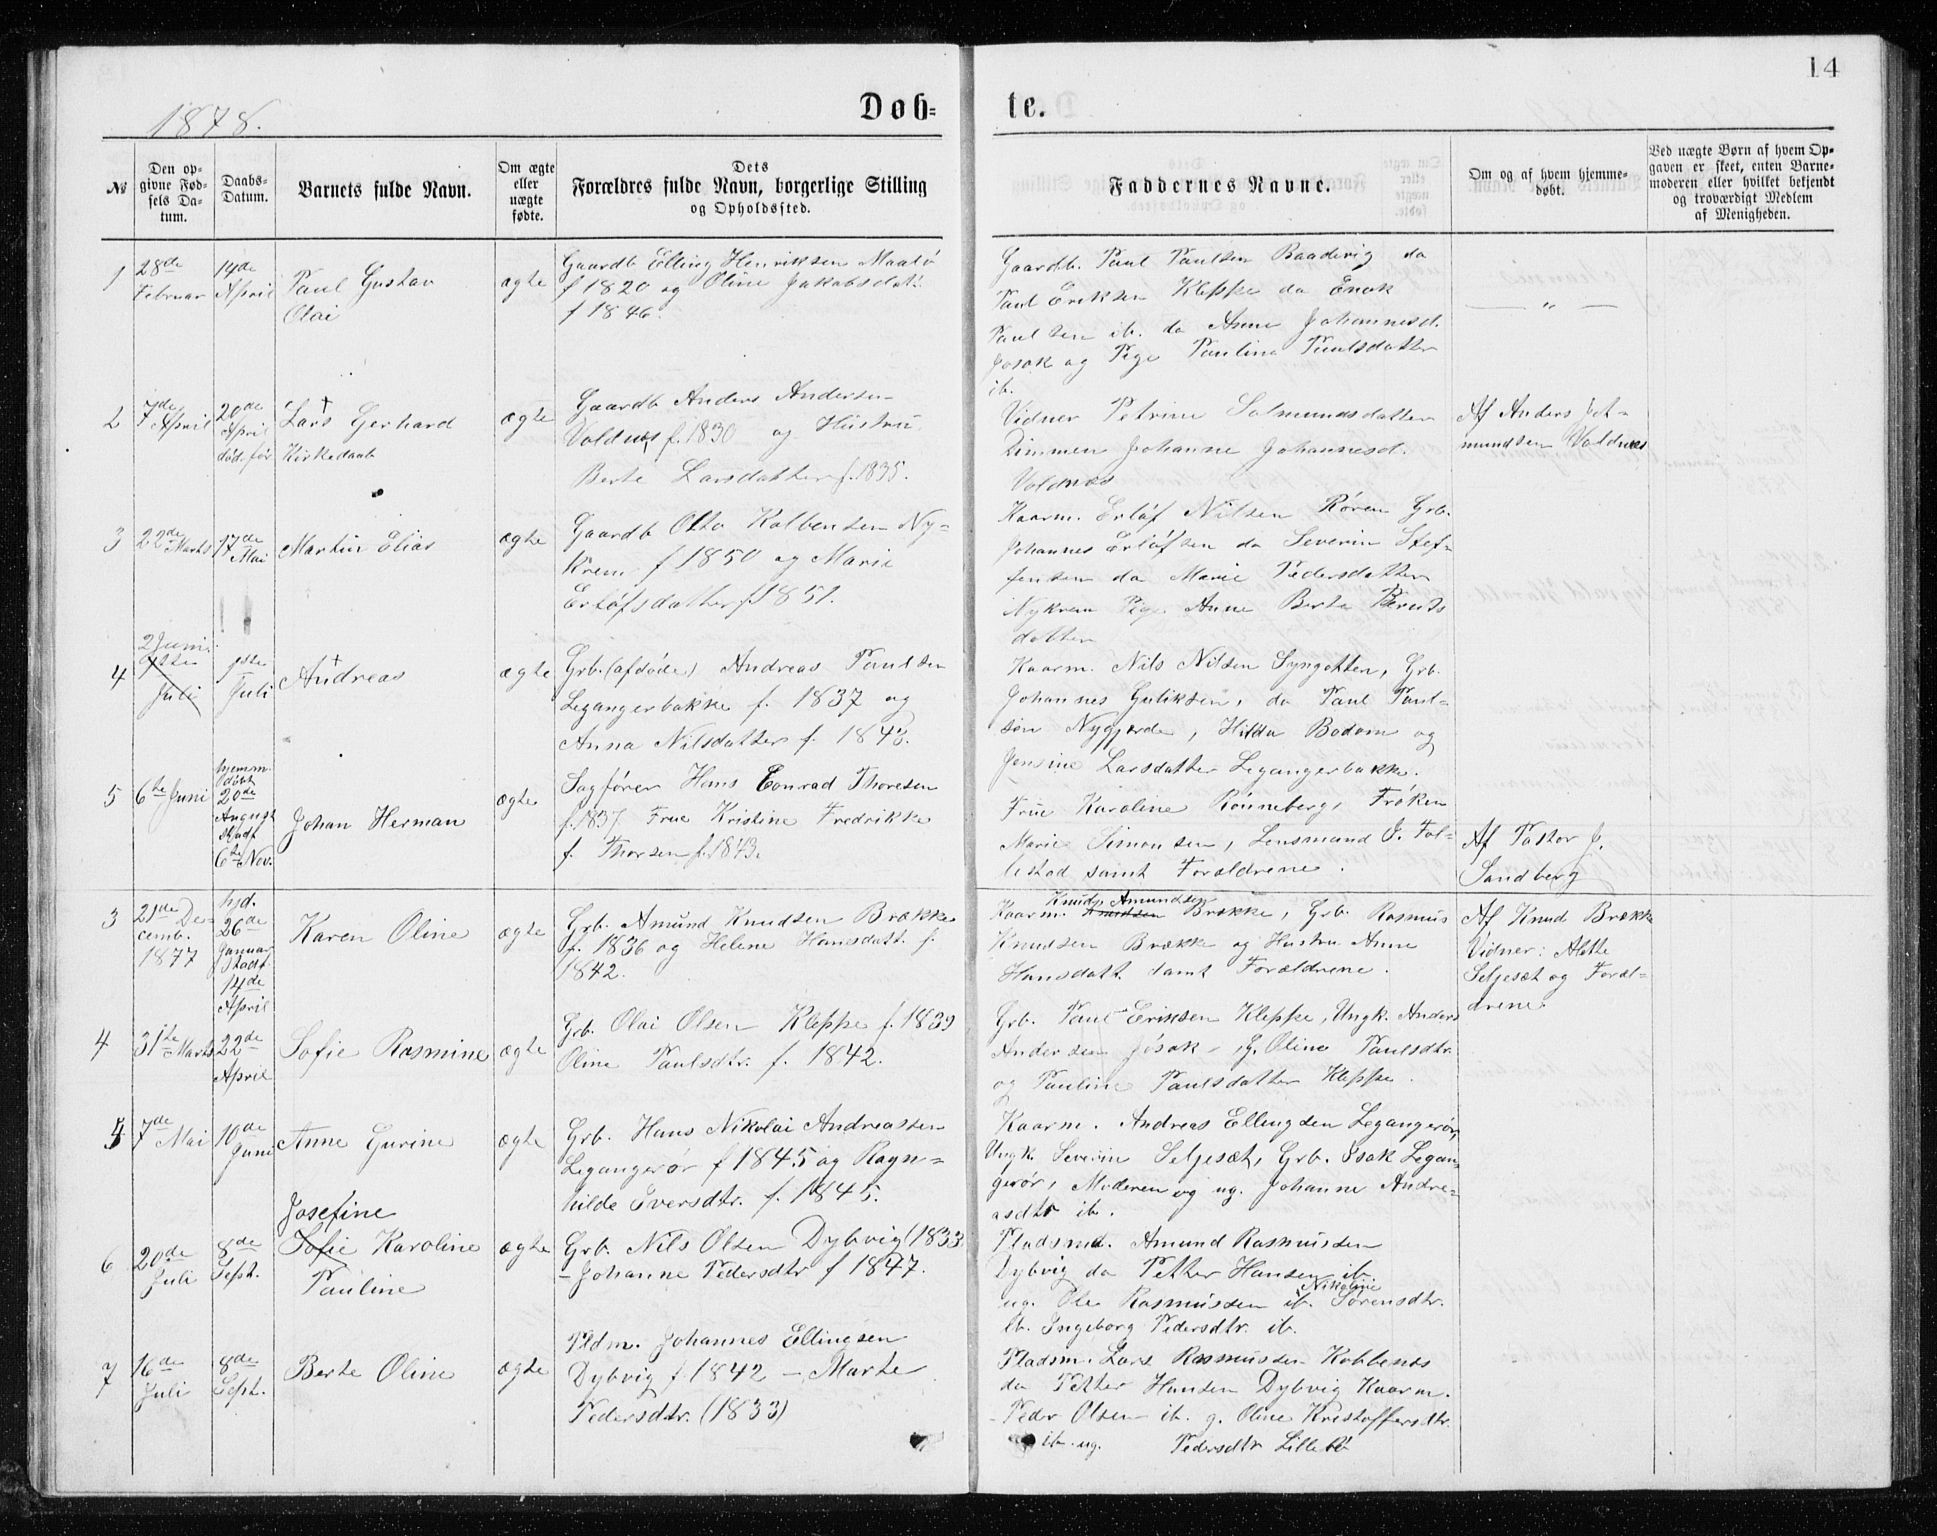 14
1878.
Døb=
te.
№
Den op-
givne Fød-
sels Da-
tum.
Daabs-
Datum.
Barnets fulde Navn.
Om ægte
eller
uægte
fødte.
Dets
Forældres fulde Navn, borgerlige Stilling
og Opholdssted.
Faddernes Navne.
Om og af hvem hjemme-
døbt.
Ved uægte Børn af hvem Op-
gaven er skeet, enten Barne-
moderen eller hvilket bekjendt
og troværdigt Medlem
af Menigheden.
1
28de
Februar
14de
April
Paul Gustav
Olai
ægte
Gaardb Elling Henriksen Maalø
f 1820 og Oline Jakobsdatt.
f 1846.
Gaardb. Paul Paulsen Raadevig do
Paul Eriksen Kleppe do Enok
Paulsen ib. do Anne Johannesd.
Josok og Pige Paulina Paulsdatter
ib.
— " —
2
7de
April
20de
April
død før
Lars Gerhard
Kirkedaab
ægte
Gaardb Anders Andersen
Voldnes f. 1830 og Hustru
Berte Larsdatter f. 1835.
Vidner Petrine Salmundsdatter
Dimmen Johanne Johannesd.
Voldnes
Af Anders
mundsen Voldnes
3
22de Marts
17de
Mai
Martin Elias
ægte
Gaardb Otto Kolbensen Ny-
Krem f 1850 og Marie
Erlöfsdatter f 1851.
Kaarm. Erlöf Nilsen Røren Grb.
Johannes Erlöfsen do Severin Stef-
fensen do Marie Pedersdatter
Nykrem Pige Anne Berte Bernts
datter
4
2 Juni
1ste
Juli
1ste
Juli
Andreas
ægte
Grb. (afdøde) Andreas Paulsen
Legangerbakke f. 1837 og
Anna Nilsdatter f. 1843.
Kaarm. Nils Nilsen Lyngotten, Grb.
Johannes Guliksen, do Paul Paul-
sen Nygjærde, Hilda Bodom og
Jensine Larsdatter Legangerbakke.
5
6te Juni
hjemm.
døbt
20de
August
Stadf.
6te Nov.
Johan Herman
ægte
Sagfører Hans Conrad Thoresen
f. 1837 Frue Kristine Fredrikke
f. Thorsen f. 1843.
Frue Karoline Rønneberg, Frøken
Marie Simonsen, Lensmand J. Fol-
lestad samt Forældrene.
Af Pastor J.
Sandberg
3
21de De-
cemb.
1877
hjd.
26de
Januar
Stadf.
14de
April
Karen Oline
ægte
Grb. Amund Knudsen Brække
f. 1836 og Helene Hansdatt. f.
1842.
Knud Amundsen
Kaarm. Knudsen Brække, Grb. Rasmus
Knudsen Brække og Hustru Anne
Hansdatt samt Forældrene.
Af Knud Brække
Vidner: Alette
Seljesæt og Foræl-
drene
4
31te Marts
22de
April
Sofie Rasmine
ægte
Grb. Olai Olsen Kleppe f. 1839
Oline Paulsdtr. f. 1842.
Grb. Paul Eriksen Kleppe, Ungk. Anders
Andersen Jøsok, G. Oline Paulsdtr.
og Pauline Paulsdatter Kleppe.
5
7de
Mai
10de
Juni
Anne Gurine
ægte
Grb. Hans Nikolai Andreassen
Legangerør f 1845 og Ragn=
hilde Iversdtr. f. 1845.
Kaarm. Andreas Ellingsen Legangerør,
Ungk Severin Seljesæt, Grb. Isak Legan-
gerør, Moderen og ug. Johanne Andre-
asdtr ib.
6
20de
Juli
8de
Sept.
Josefine
Sofie Karoline
Pauline
ægte
Grb. Nils Olsen Dybvig (1833
– Johanne Pedersdtr f 1847.
Pladsmd. Amund Rasmussen
Dybvig do Petter Hansen ib
Nikoline
ug. Ole Rasmussen ib. Sørensdtr.
ib. Ingeborg Pedersdtr. ib.
7
16de
Juli
8de
Sept.
Berte Oline
ægte
Pldm. Johannes Ellingsen
Dybvig f. 1842 – Marte
Pedersdtr. (1833)
Pladsm. Lars Rasmussen Kobbenes
do Petter Hansen Dybvig Kaarm.
Peder Olsen ib. g. Oline Kristoffersdtr.
ib. ug. Pedersdtr Lillebø